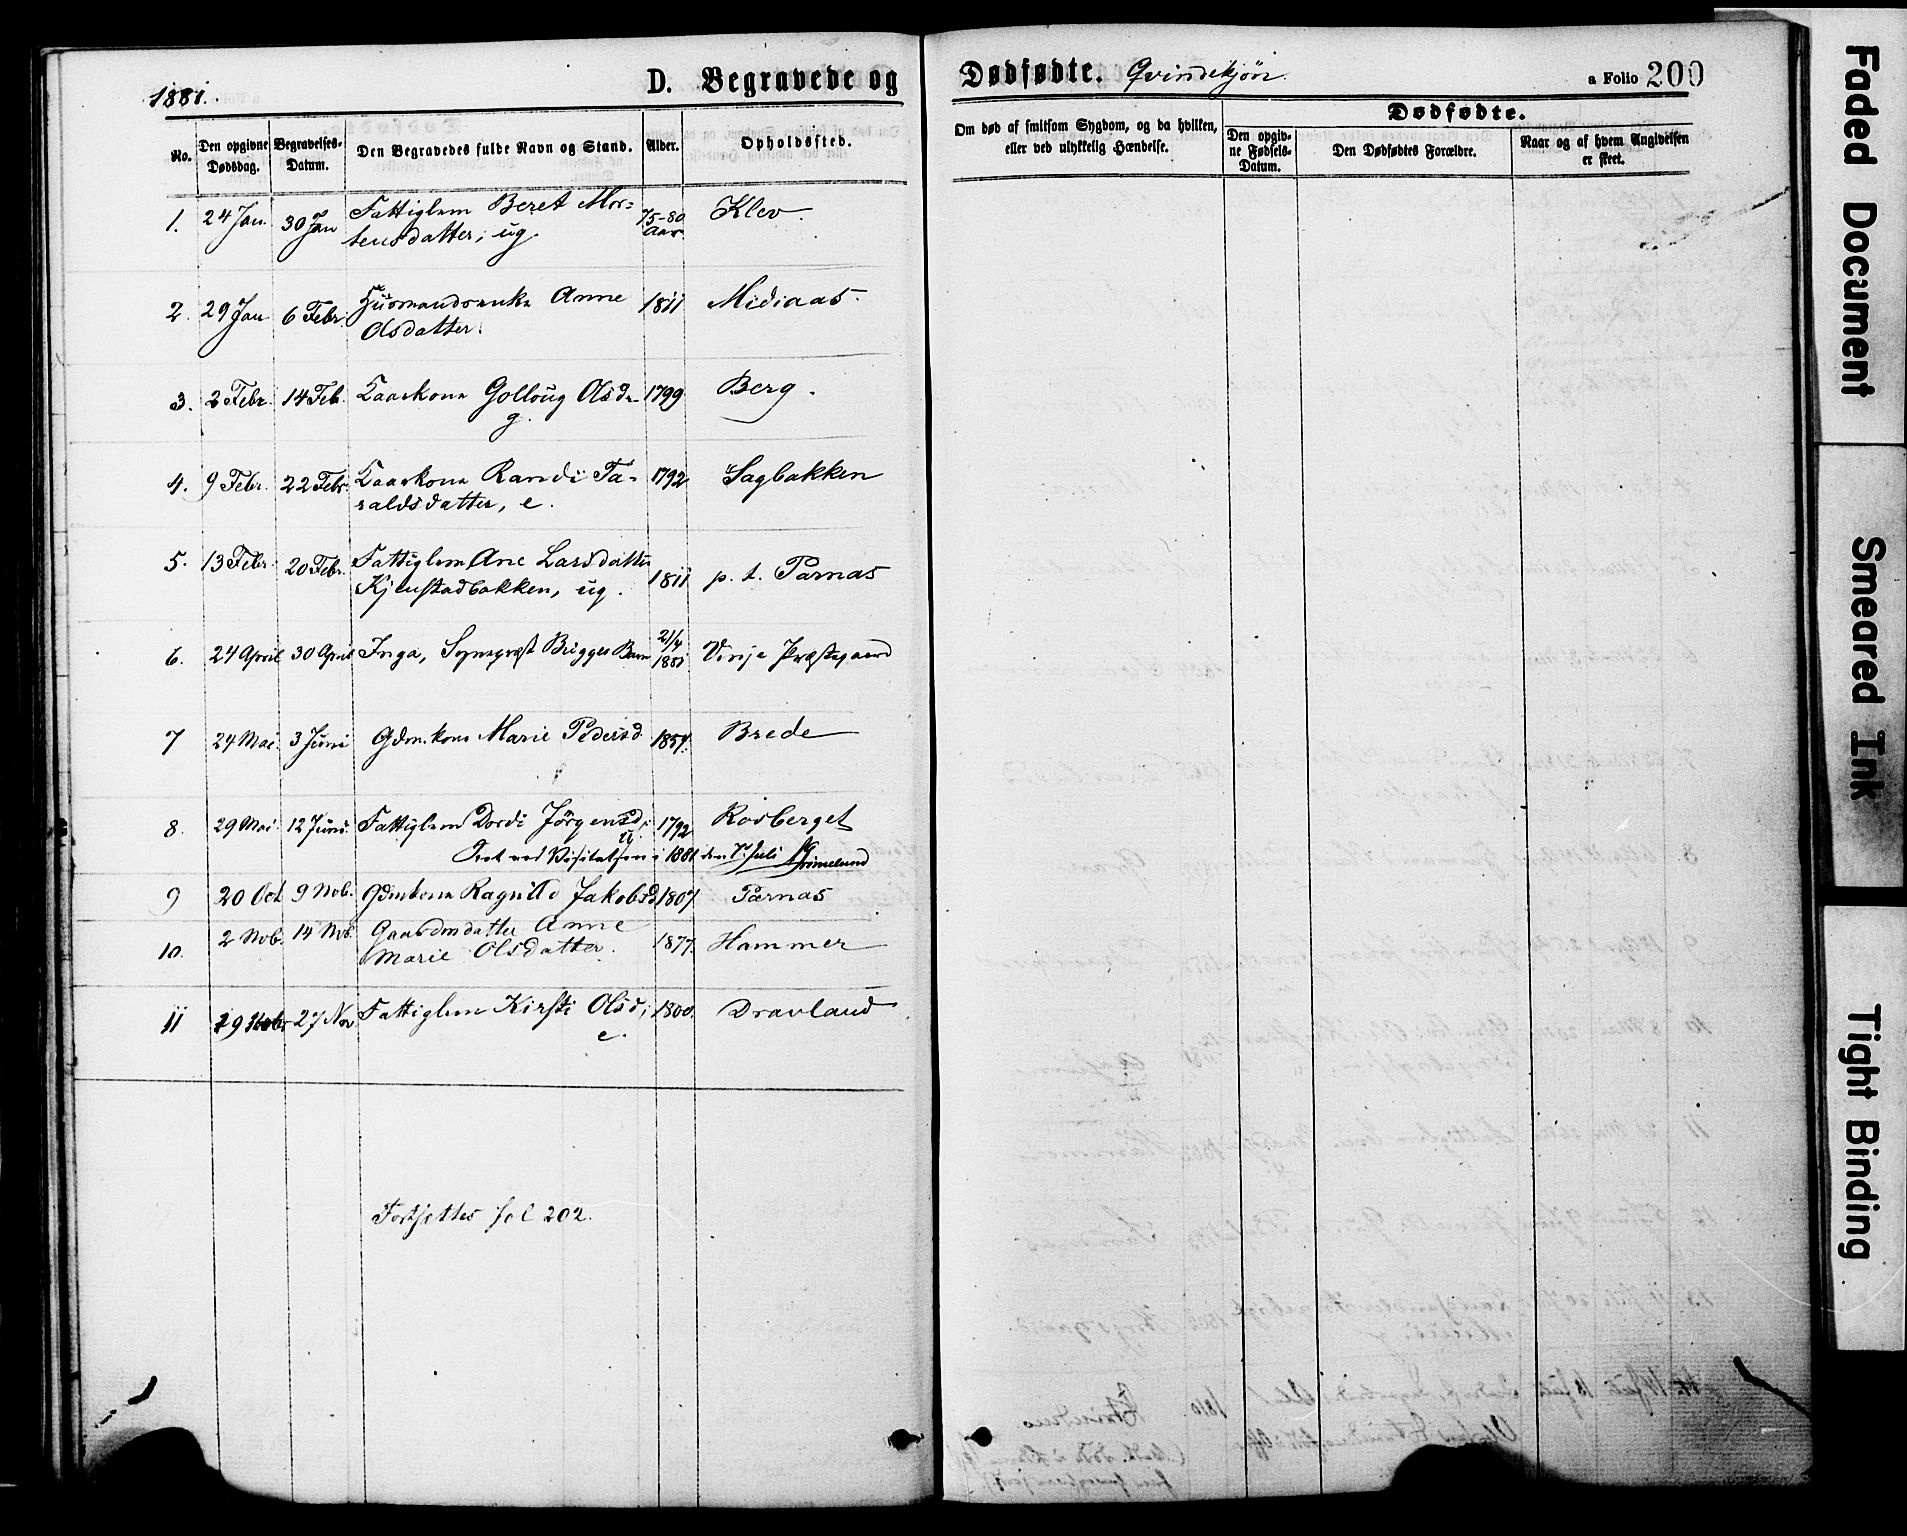 1881.
D. Begravede og Dødfødte. Qvindekjøn
a Folio 200
No.
Den opgivne Dødsdag.
Begravelses-Datum.
Den Begravedes fulde Navn og Stand.
Alder.
Opholdssted.
Om død af smitsom Sygdom, og da hvilken,
eller ved ulykkelig Hændelse.
Dødfødte.
Den opgiv-
ne Fødsels-
Datum.
Den Dødfødtes Forældre.
Naar og af hvem Angivelsen
er skeet.
1. 24 Jan. 30 Jan Fattiglem Beret Mor=
tensdatter, ug. 75-80 Aar Klev.
2. 29 Jan 6 Febr. Husmandsenke Anne
Olsdatter. 1811 Midiaas.
3. 2 Febr. 14 Feb. Kaarkone Golloug Olsd.
g. 1799 Berg.
4. 9 Febr. 22 Febr. Kaarkone Randi Ta-
raldsdatter, e. 1792 Sagbakken
5. 13 Febr. 20 Febr. Fattiglem Ane Larsdatter
Kjenstadbakken, ug. 1811 p. t. Parnas
6. 24 April 30 April Inga, Sognepræst Bügges Barn 21/4 1881 Vinje Præstegaard
7 24 Mai. 3 Juni Gdm.kone Marie Pedersd 1857. Brede
8. 29 Mai. 12 Juni. Fattiglem Dordi Jørgensd; 1792 Rosberget
ug
Seet ved Visitatsen i 1881 den 7 Juli Grimelund
9 20 Oct 9 Nob. Gdmkone Ragnild Jakobsd 1807. Parnas
10. 2 Nob. 14 Nob. Gaardmdatter Anne
Marie Olsdatter. 1877. Hammer
11 19 27 Nov Fattiglem Kirsti Olsd; 1800. Dravland
e.
Fortsættes fol 202.
Faded Document
Smeared Ink
Tight Binding